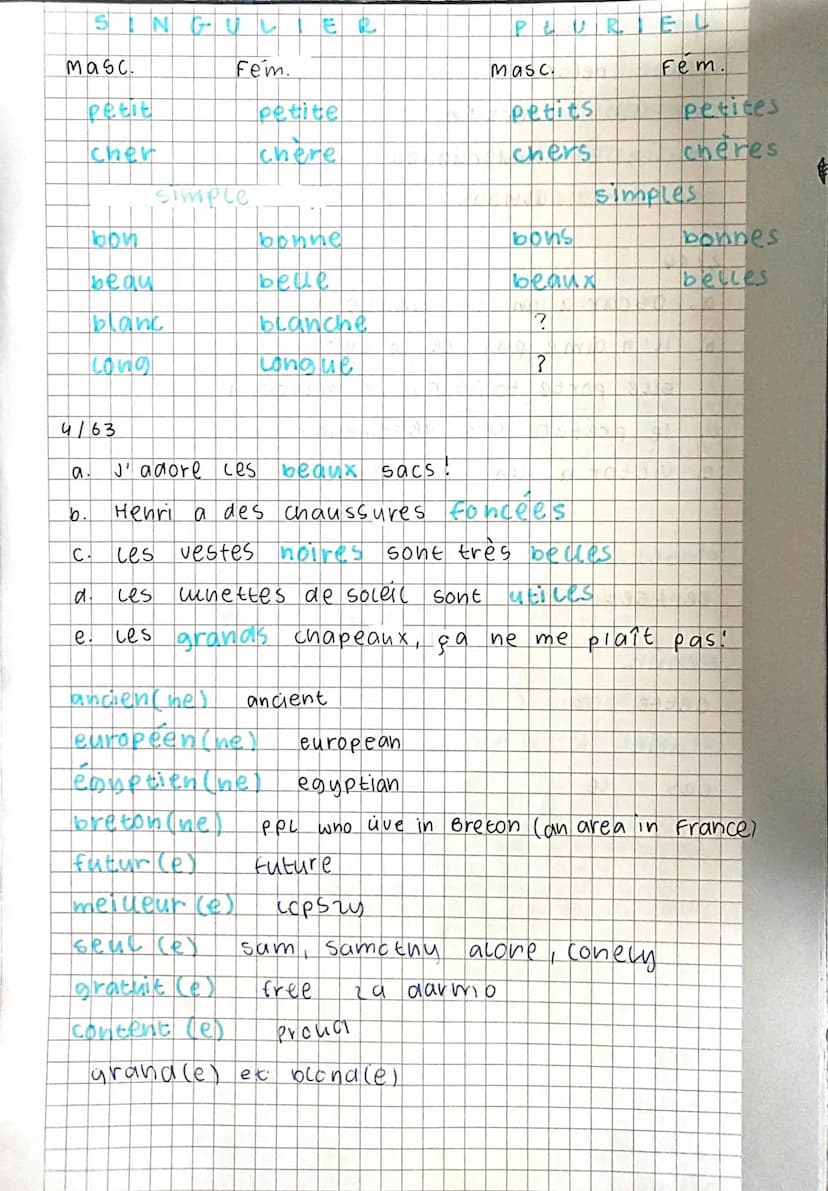 SINGULIER PLURIEL
Masc. Fém. Masc. Fém.
petit petite petits petites
cher chère chers chères
simple simples
bon bonne bons bonnes
beau belle beaux belles
blanc blanche ?
long longue ?
4/63
a. J'adore les beaux sacs!
b. Henri a des chaussures foncées
c. Les vestes noires sont très belles
d. Les lunettes de soleil sont utiles
e. Les grands chapeaux, ça ne me plaît pas!
ancien(ne) ancient
européen(ne) european
égyptien(ne) egyptian
breton(ne) ppl who live in Breton (an area in France)
futur(e) future
meilleur(e) lepszy
seul(e) sam, samotny alone, lonely
gratuit(e) free za darmo
content(e) proud
grand(e) et blond(e)